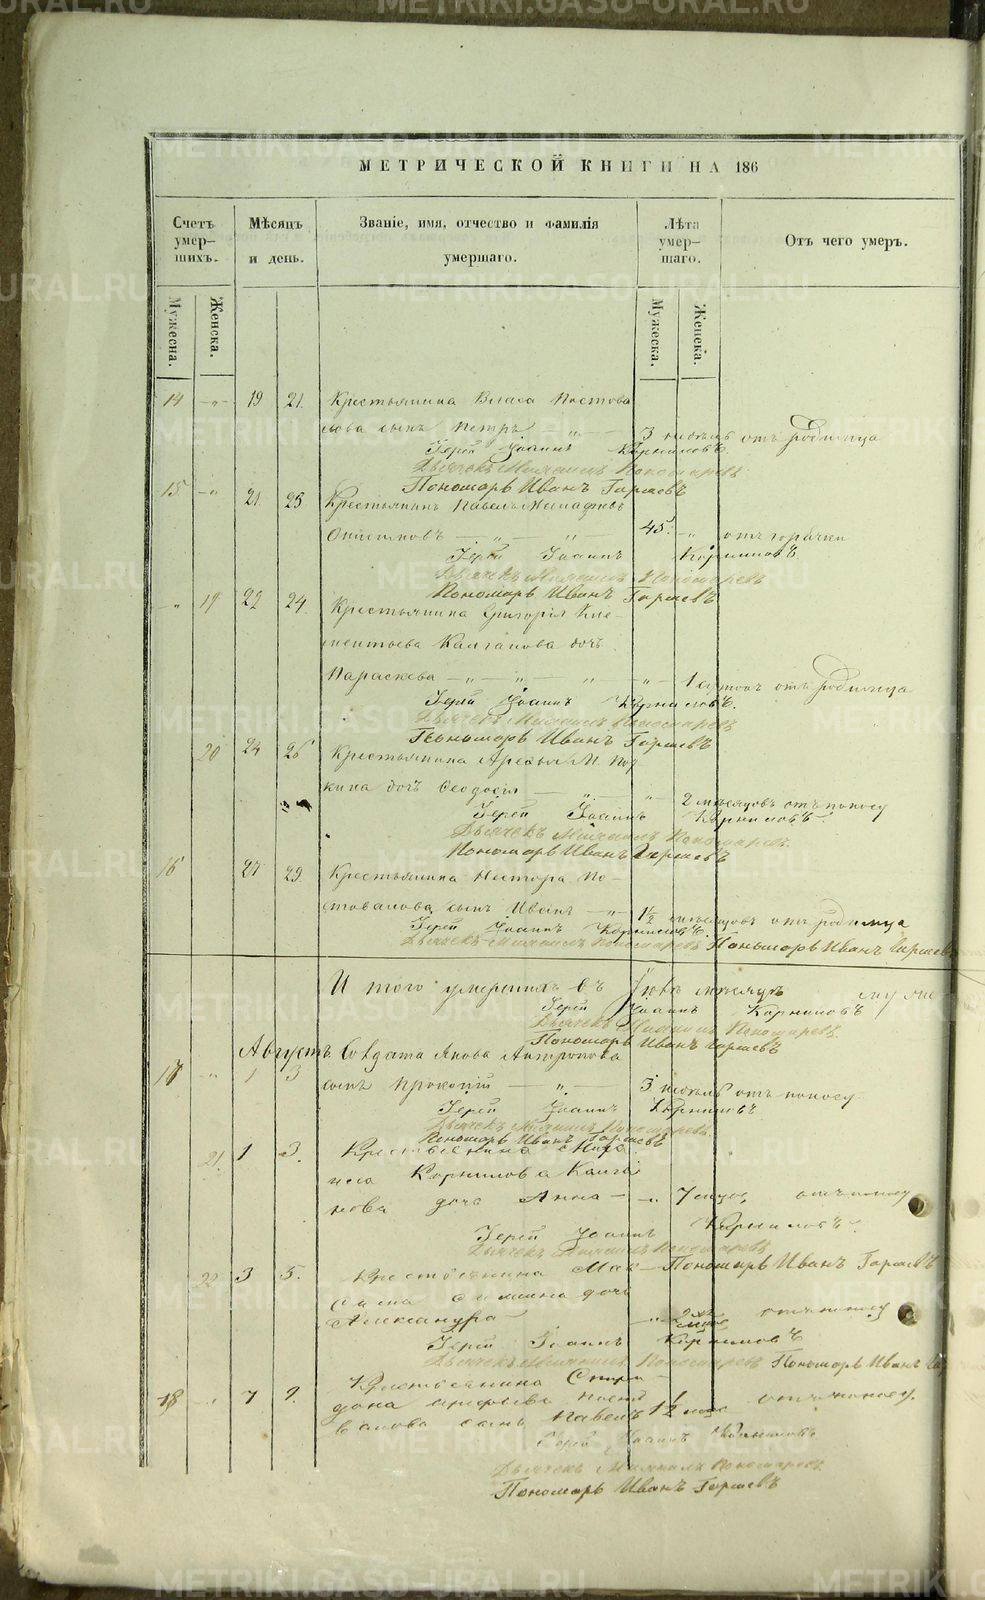 МЕТРИЧЕСКОЙ КНИГИ НА 186
Счетъ умер-шихъ. Мѣсяцъ и день. Званіе, имя, отчество и фамилія умершаго. Лѣта умер-шаго. Отъ чего умеръ.
Мужеска. Женска. Мужеска. Женска.
14 -„- 19 21. Крестьянина Власа Постова
лова сынъ Петръ -„- 3 недѣль отъ родимца
Іерей Іоаннъ Корниловъ.
Дьячекъ Михаилъ Пономаревъ
Пономарь Иванъ Гаряевъ
15. -„- 21. 23 Крестьянинъ Павелъ
-„- -„- 45. -„- отъ горячки
Іерей Іоаннъ Корниловъ
Дьячекъ Михаилъ Пономаревъ
Пономарь Иванъ Гаряевъ
„ 19 22 24. Крестьянина Григорія Кле-
ментьева Калганова дочь
Параскева -„- -„- -„- -„- 1 сутокъ отъ родимца
Іерей Іоаннъ Корниловъ.
Дьячекъ Михаилъ Пономаревъ
Пономарь Иванъ Гаряевъ
20 24 26 Крестьянина
дочь Ѳеодосія -„- -„- 2 мѣсяцовъ отъ поносу
Іерей Іоаннъ Корниловъ.
Дьячекъ Михаилъ Пономаревъ.
Пономарь Иванъ Гаряевъ
16 27 29. Крестьянина Нестора По-
стовалова сынъ Иванъ -„- 1½ мѣсяцовъ отъ родимца
Іерей Іоаннъ Корниловъ.
Дьячекъ Михаилъ Пономаревъ Пономарь Иванъ Гаряевъ
И того умершихъ въ Іюлѣ мѣсяцѣ
Іерей Іоаннъ Корниловъ
Дьячекъ Михаилъ Пономаревъ.
Пономарь Иванъ Гаряевъ
Августъ Солдата Якова Антропова
17 -„- 1 3 сынъ Прокопій -„- 3 недѣль отъ поносу
Іерей Іоаннъ Корниловъ
Дьячекъ Михаилъ Пономаревъ.
Пономарь Иванъ Гаряевъ
21. 1 3. Крестьянина
Корнилова Калга
нова дочь Анна - „ 7 отъ поносу
Іерей Іоаннъ Корниловъ.
Дьячекъ Михаилъ Пономаревъ
Пономарь Иванъ Гаряевъ
22 3 5. Крестьянина Мак-
дочь
Александра -„- 2 отъ поносу
Іерей Іоаннъ Корниловъ
Дьячекъ Михаилъ Пономаревъ Пономарь Иванъ
18 7 9. Крестьянина Спири
дона
сынъ Павелъ 1½ года отъ поносу.
Іерей Іоаннъ Корниловъ
Дьячекъ Михаилъ Пономаревъ.
Пономарь Иванъ Гаряевъ
METRIKI.GASO-URAL.RU